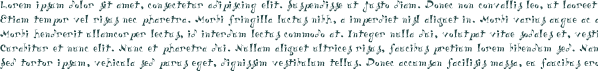 Lorem ipsum dolor sit amet, consectetur adipiscing elit. Suspendisse ut justo diam. Donec non convallis leo, ut laoreet
Etiam tempor vel risus nec pharetra. Morbi fringilla luctus nibh, a imperdiet nisl aliquet in. Morbi varius augue ac a
Morbi hendrerit ullamcorper lectus, id interdum lectus commodo at. Integer nulla dui, volutpat vitae sodales et, vesti
Curabitur et nunc elit. Nunc et pharetra dui. Nullam aliquet ultrices risus, faucibus pretium lorem bibendum sed. Nam
Sed tortor ipsum, vehicula sed purus eget, dignissim vestibulum tellus. Donec accumsan facilisis massa, eu faucibus ero